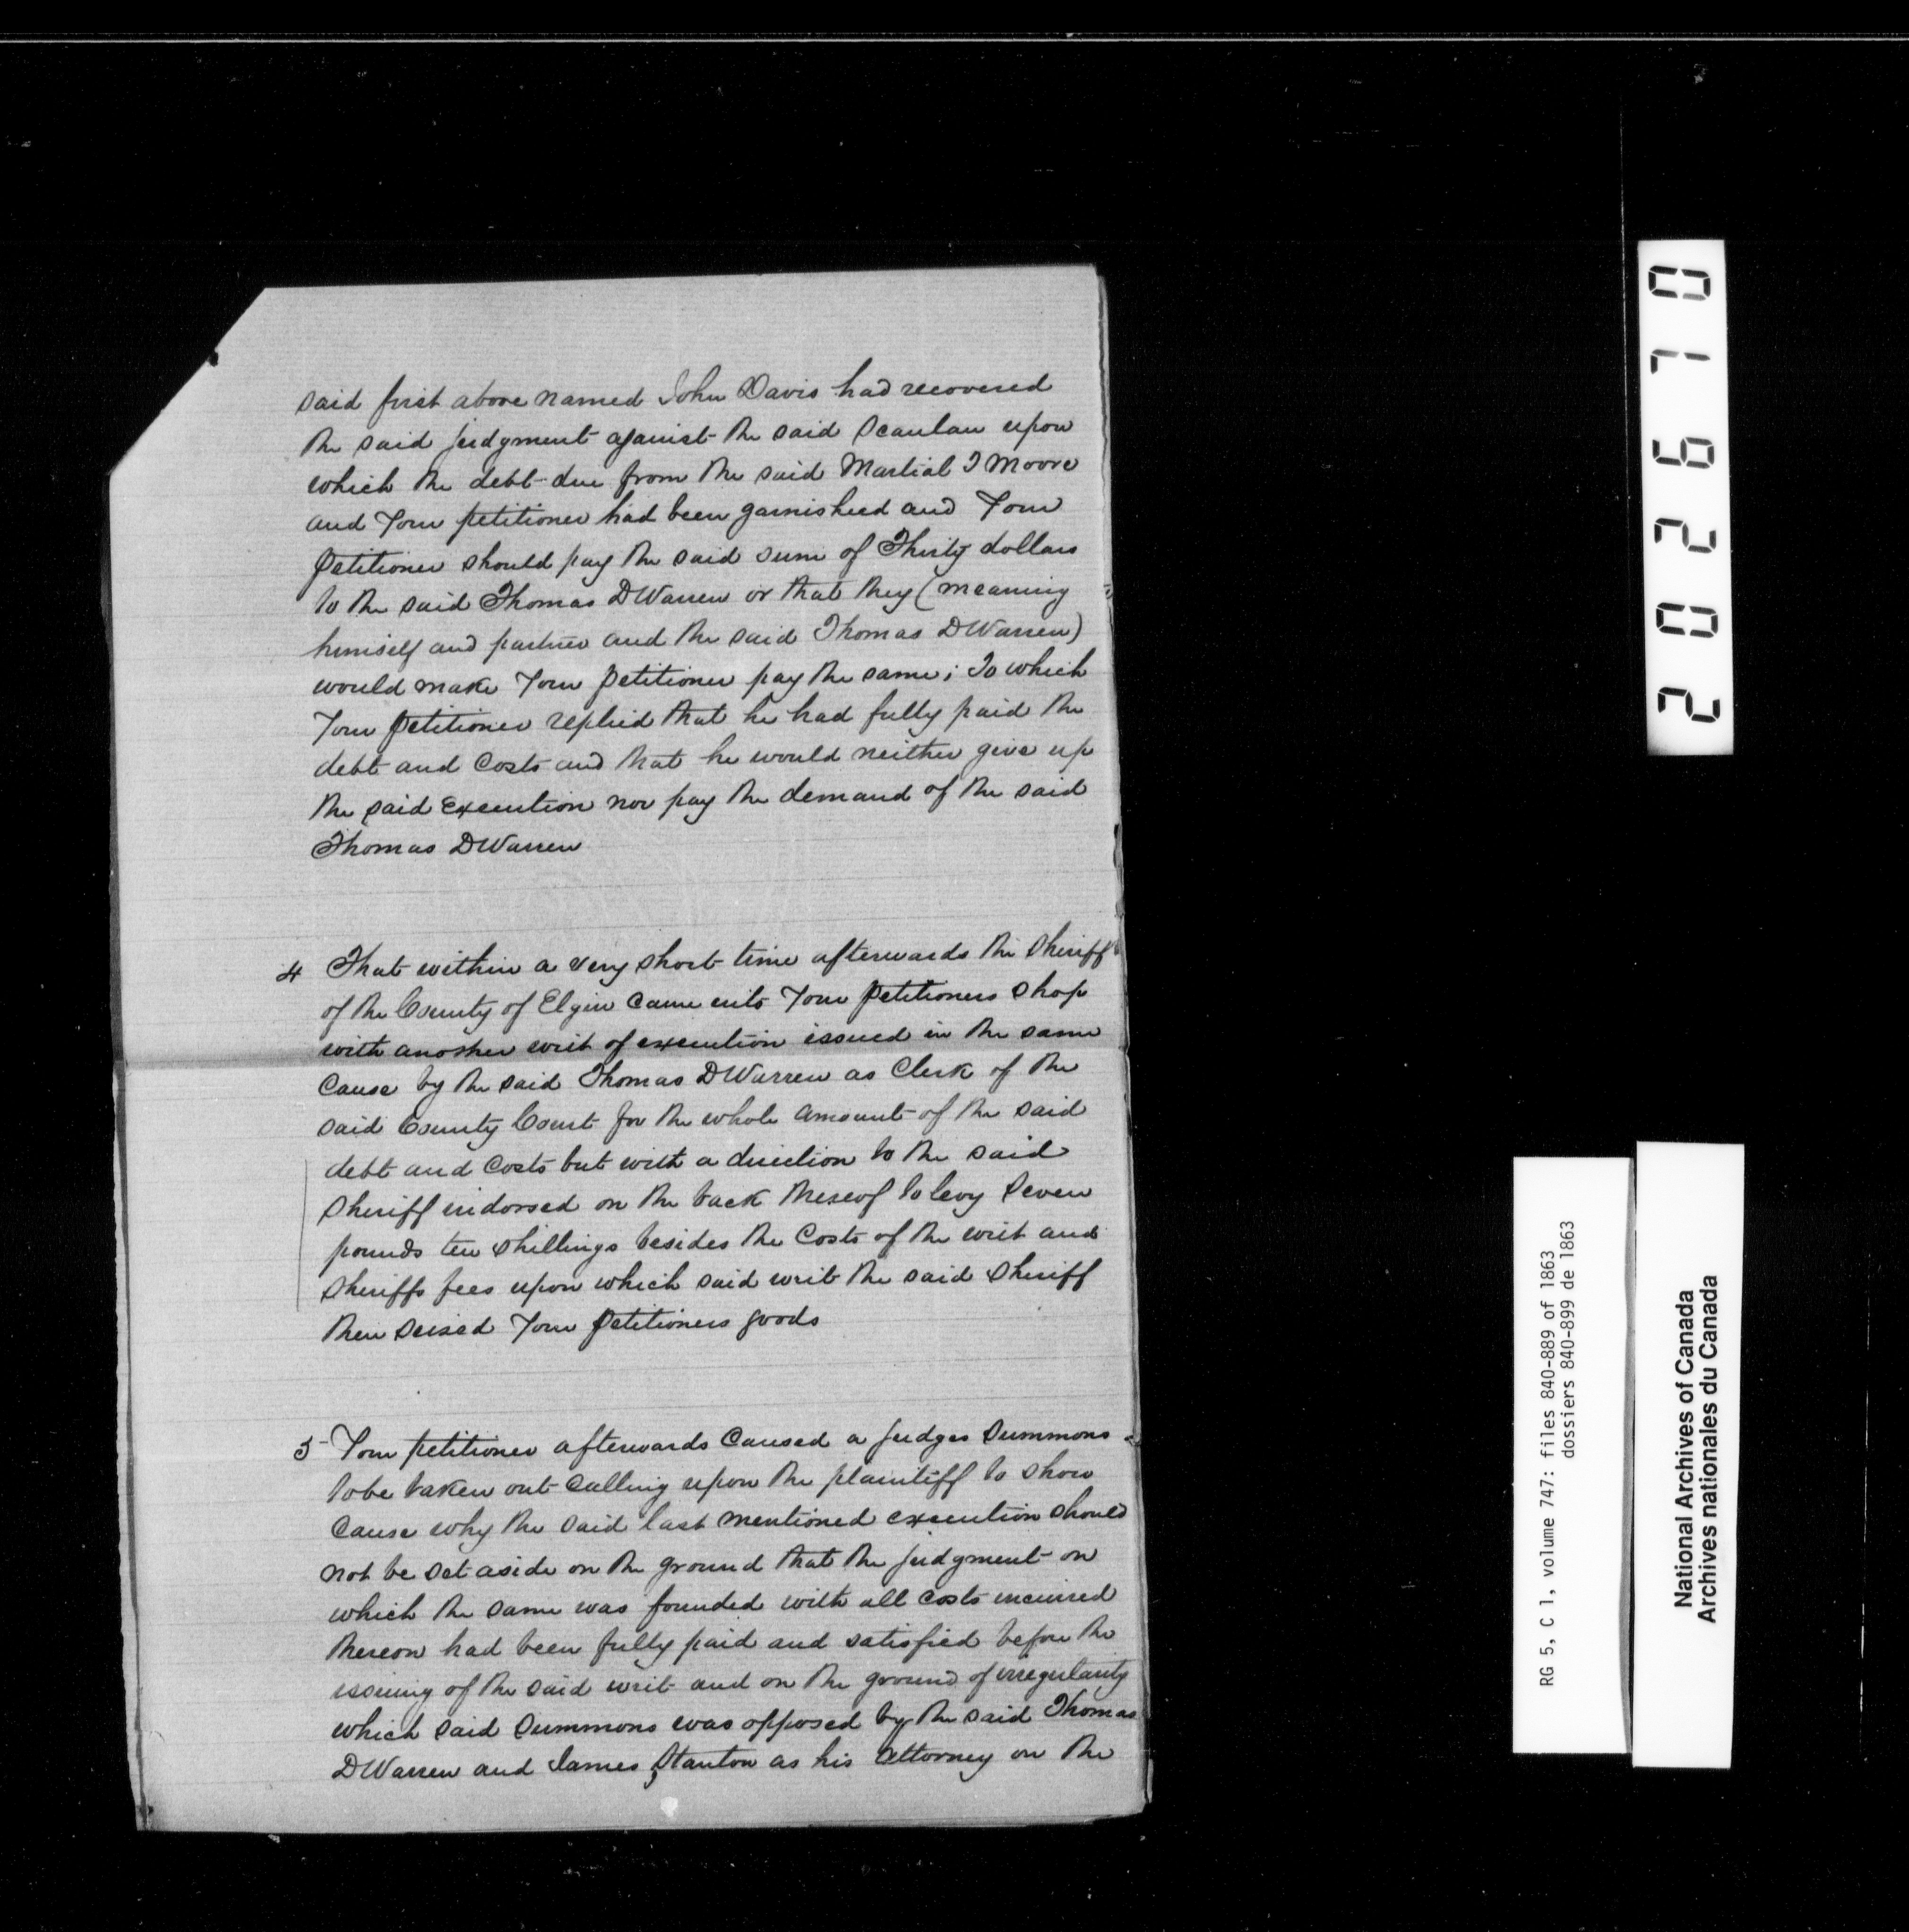 said first above named John Davis had recovered
the said judgment against the said Scanlan upon
which the debt due from the said Martial I Moore
and Your petitioner had been garnisheed and Your
petitioner should pay the said sum of Thirty dollars
to the said Thomas D Warren or that they (meaning
himself and partner and the said Thomas D Warren)
would make Your petitioner pay the same; To which
Your petitioner replied that he had fully paid the
debt and Costs and that he would neither give up
the said Execution nor pay the demand of the said
Thomas D Warren
4 That within a very short time afterwards the Sheriff
of the County of Elgin came into Your petitioners shop
with another writ of execution issued in the same
Cause by the said Thomas D Warren as Clerk of the
said County Court for the whole amount of the said
debt and Costs but with a direction to the said
Sheriff indorsed on the back thereof to levy Seven
pounds ten shillings besides the Costs of the writ and
Sheriffs fees upon which said writ the said Sheriff
then seised Your petitioners goods
5 Your petitioner afterwards Caused a Judges Summons
to be taken out Calling upon the plaintiff to show
Cause why the said last mentioned execution should
not be set aside on the ground that the judgment on
which the same was founded with all costs incurred
thereon had been fully paid and satisfied before the
issuing of the said writ and on the ground of irregularity
which said Summons was opposed by the said Thomas
D Warren and James Stanton as his Attorney on the
202670
RG 5, C 1, volume 747: files 840-889 of 1863
dossiers 840-899 de 1863
National Archives of Canada
Archives nationales du Canada